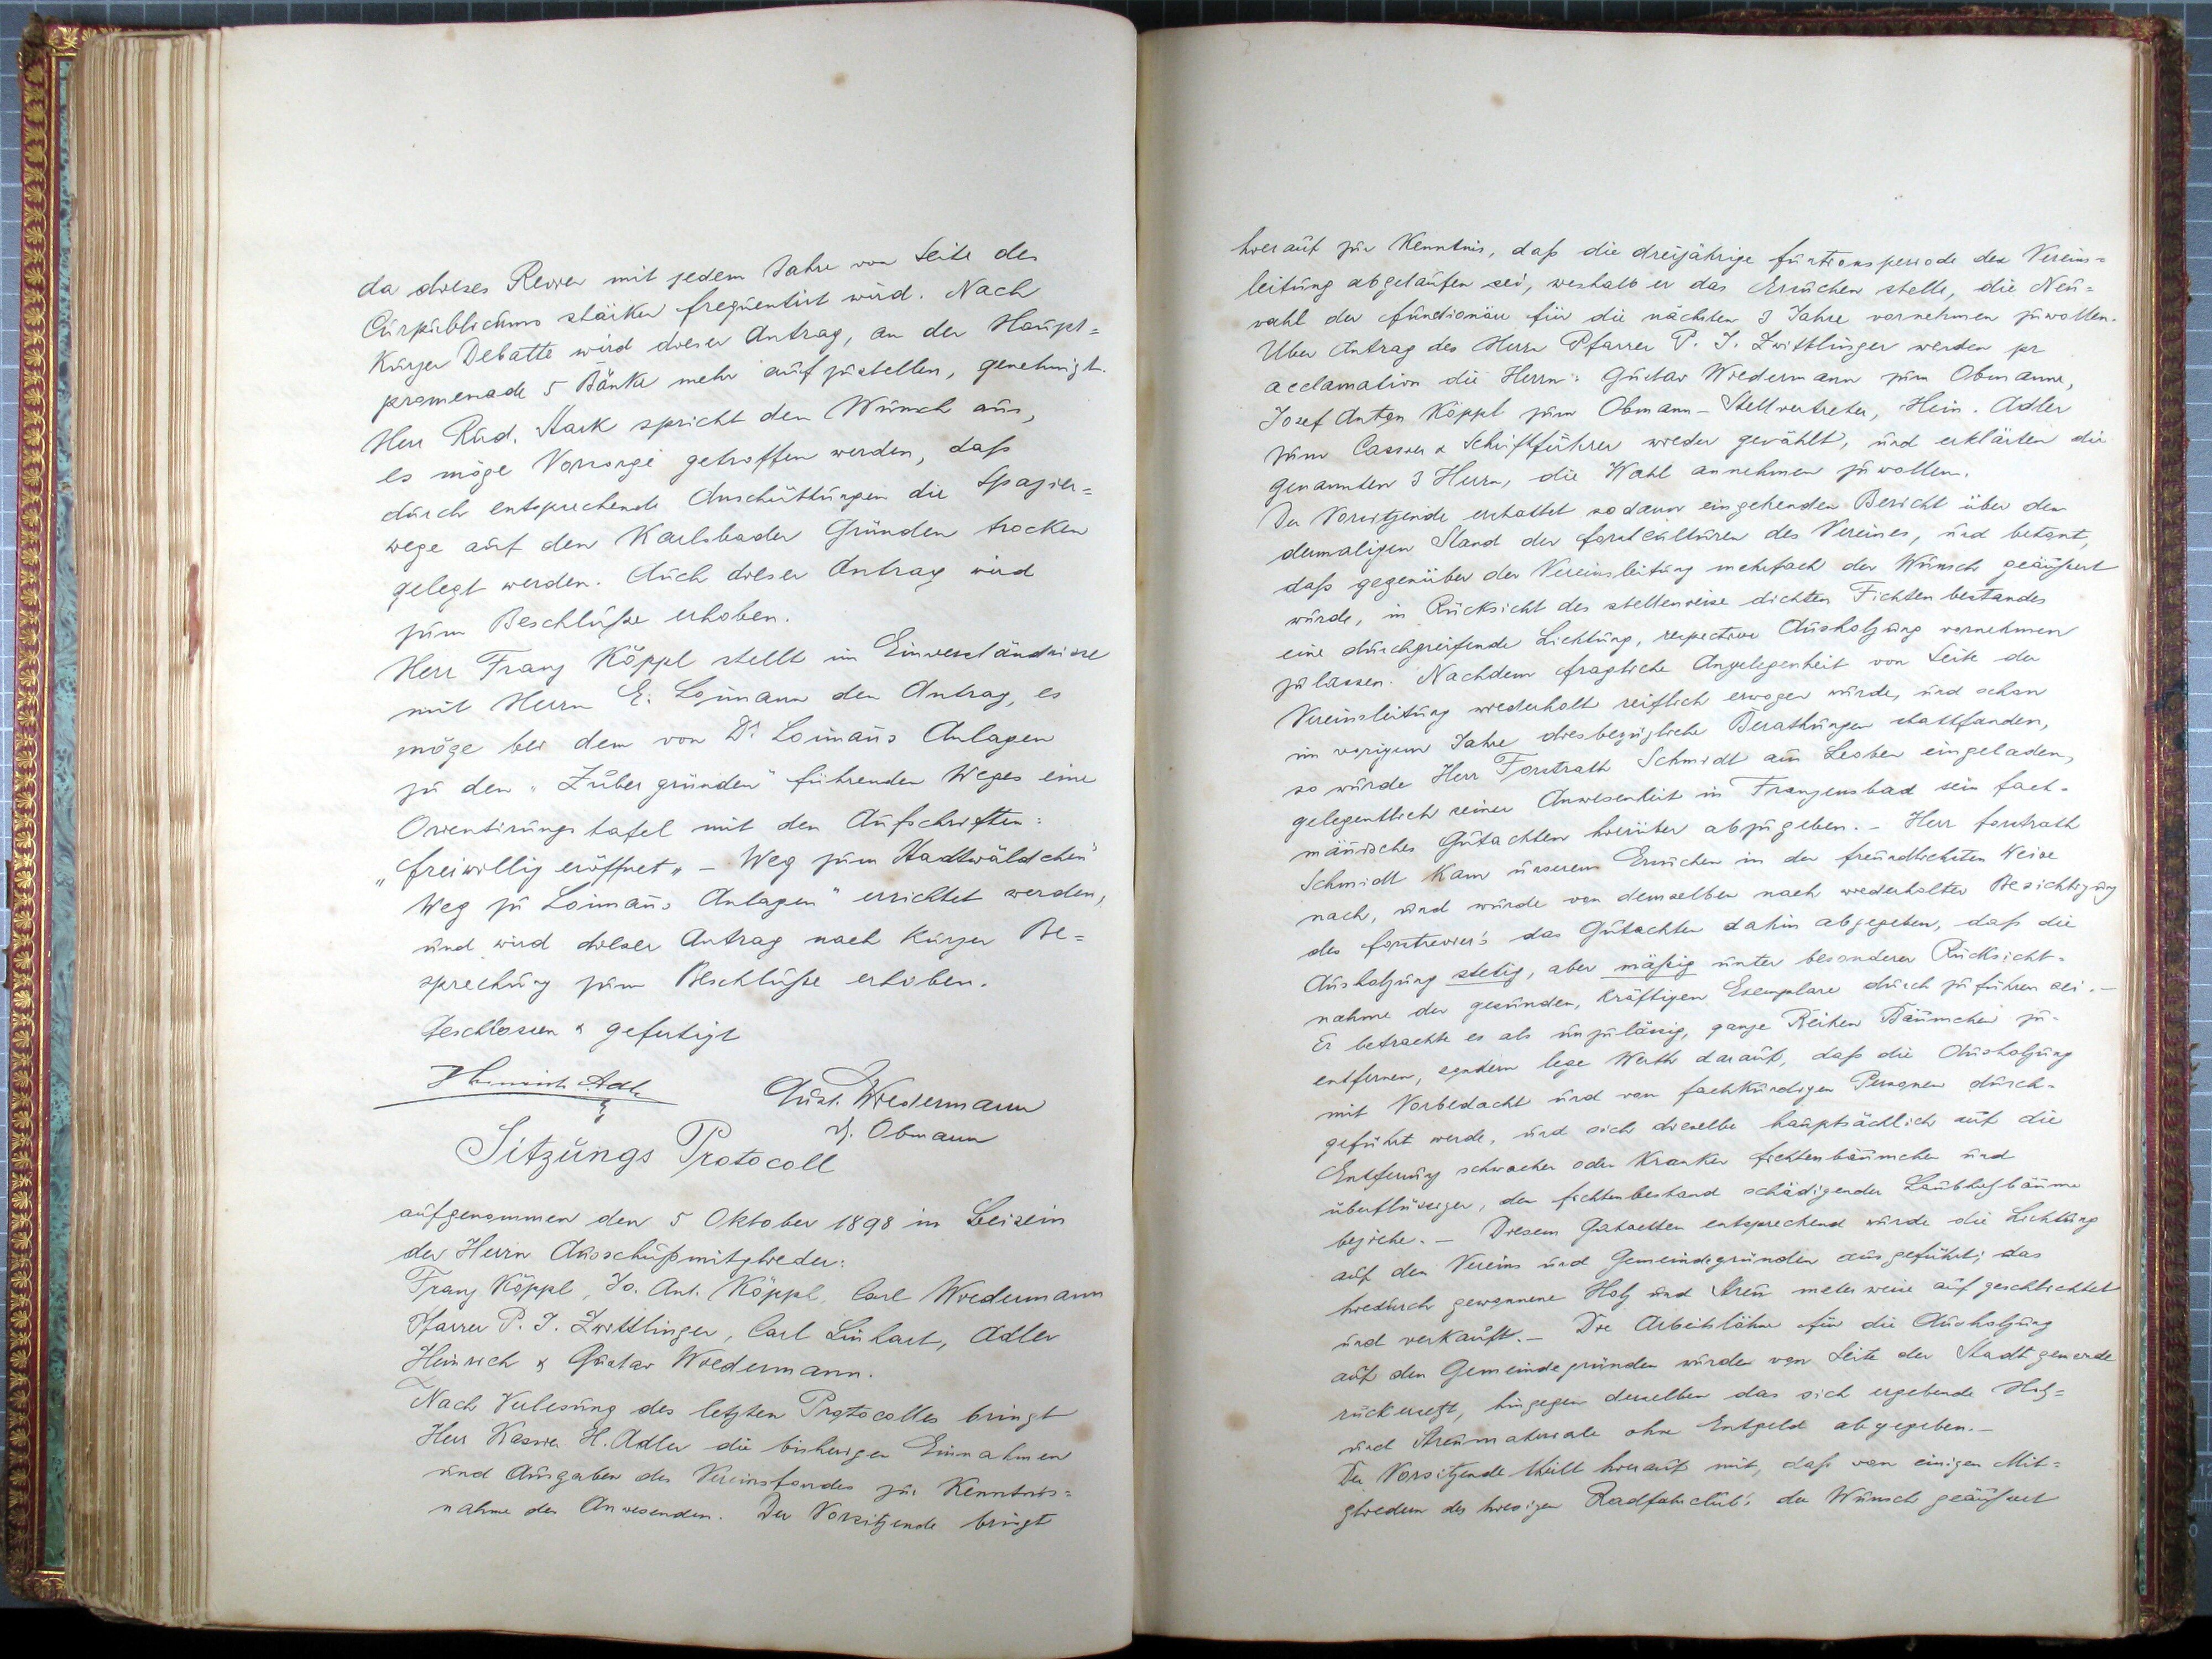 da dieses Revier mit jedem Jahre von Seite des
Curpublicums stärker frequentirt wird. Nach
kurzer Debatte wird dieser Antrag, an der Haupt=
promenade 5 Bänke mehr aufzustellen, genehmigt.
Herr Rud. Stark spricht den Wunsch aus,
es möge Vorsorge getroffen werden, daß
durch entsprechende Anschüttungen die Spazier=
wege auf den Karlsbader Gründen trocken
gelegt werden. Auch dieser Antrag wird
zum Beschluße erhoben.
Herr Franz Köppl stellt im Einverständnisse
mit Herrn E. Loimann den Antrag, es
möge bei dem von Dr. Loimans Anlagen
zu den "Zubergründen" führenden Weges eine
Orientirungstafel mit den Aufschriften:
"freiwillig eröffnet" – Weg zum Stadtwäldchen"
Weg zu Loimans Anlagen" errichtet werden,
und wird dieser Antrag nach kurzer Be=
sprechung zum Beschluße erhoben.
Geschlossen & gefertigt
Heinrich Adler
Gust. Wiedermann
d. Obmann
Sitzungs Protocoll
aufgenommen den 5 Oktober 1898 im Beisein
der Herrn Ausschußmitglieder:
Franz Köppl, Jo. Ant. Köppl, Carl Wiedermann
Pfarrer P. J. Zwittlinger, Carl Linhart, Adler
Heinrich & Gustav Wiedermann.
Nach Verlesung des letzten Protocolles bringt
Herr Kassier H. Adler die bisherigen Einnahmen
und Ausgaben des Vereinsfondes zur Kenntnis=
nahme der Anwesenden. Der Vorsitzende bringt
hierauf zur Kenntnis, daß die dreijährige Functionsperiode der Vereins=
leitung abgelaufen sei, weshalb er das Ersuchen stelle, die Neu=
wahl der Functionäre für die nächsten 3 Jahre vornehmen zu wollen.
Über Antrag des Herrn Pfarrer P. J. Zwittlinger werden pr
acclamation die Herrn: Gustav Wiedermann zum Obmanne,
Josef Anton Köppl zum Obmann-Stellvertreter, Hein. Adler
zum Cassier & Schriftführer wieder gewählt, und erklärten die
genannten 3 Herrn, die Wahl annehmen zu wollen.
Der Vorsitzende erstattet sodann eingehenden Bericht über den
dermaligen Stand der Forstculturen des Vereines, und betont,
daß gegenüber der Vereinsleitung mehrfach der Wunsch geäußert
wurde, in Rücksicht des stellenweise dichten Fichtenbestandes
eine durchgreifende Lichtung, respective Ausholzung vornehmen
zu lassen. Nachdem fragliche Angelegenheit von Seite der
Vereinsleitung wiederholt reiflich erwogen wurde, und schon
im vorigem Jahre diesbezügliche Berathungen stattfanden,
so wurde Herr Forstrath Schmidt aus Leoben eingeladen,
gelegentlich seiner Anwesenheit in Franzensbad sein fach=
männisches Gutachten hierüber abzugeben. – Herr Forstrath
Schmidt kam unserem Ersuchen in der freundlichsten Weise
nach, und wurde von demselben nach wiederholter Besichtigung
des Forstrevier's das Gutachten dahin abgegeben, daß die
Ausholzung stetig, aber mäßig unter besonderer Rücksicht=
nahme der gesunden, kräftigen Exemplare durchzuführen sei. –
Er betrachte es als unzulässig, ganze Reihen Bäumchen zu
entfernen, sondern lege Werth darauf, daß die Ausholzung
mit Vorbedacht und von fachkundigen Personen durch=
geführt werde, und sich dieselbe hauptsächlich auf die
Entfernung schwacher oder kranker Fichtenbäumchen und
überflüssiger, den Fichtenbestand schädigender Laubholzbäume
beziehe. – Diesem Gutachten entsprechend wurde die Lichtung
auf den Vereins und Gemeindegründen ausgeführt; das
hiedurch gewonnene Holz und Streu meterweise aufgeschlichtet
und verkauft. – Die Arbeitslöhne für die Ausholzung
auf den Gemeindegründen wurden von Seite der Stadtgemeinde
rückersetzt, hingegen derselben das sich ergebende Holz=
und Streumateriale ohne Entgeld abgegeben. –
Der Vorsitzende theilt hierauf mit, daß von einigen Mit=
gliedern des hiesigen Radfahrclub's der Wunsch geäußert